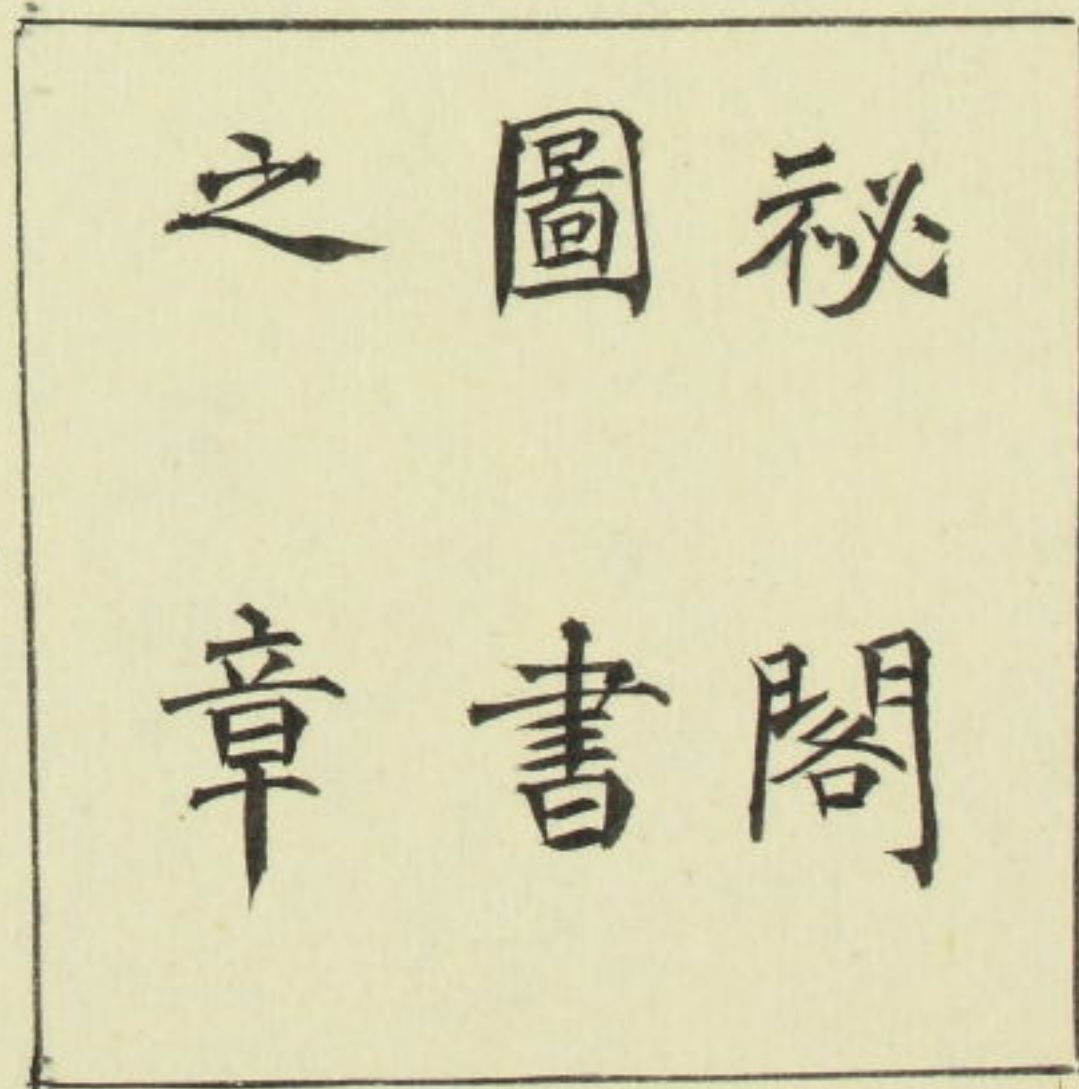 祕閣
圖書
之章